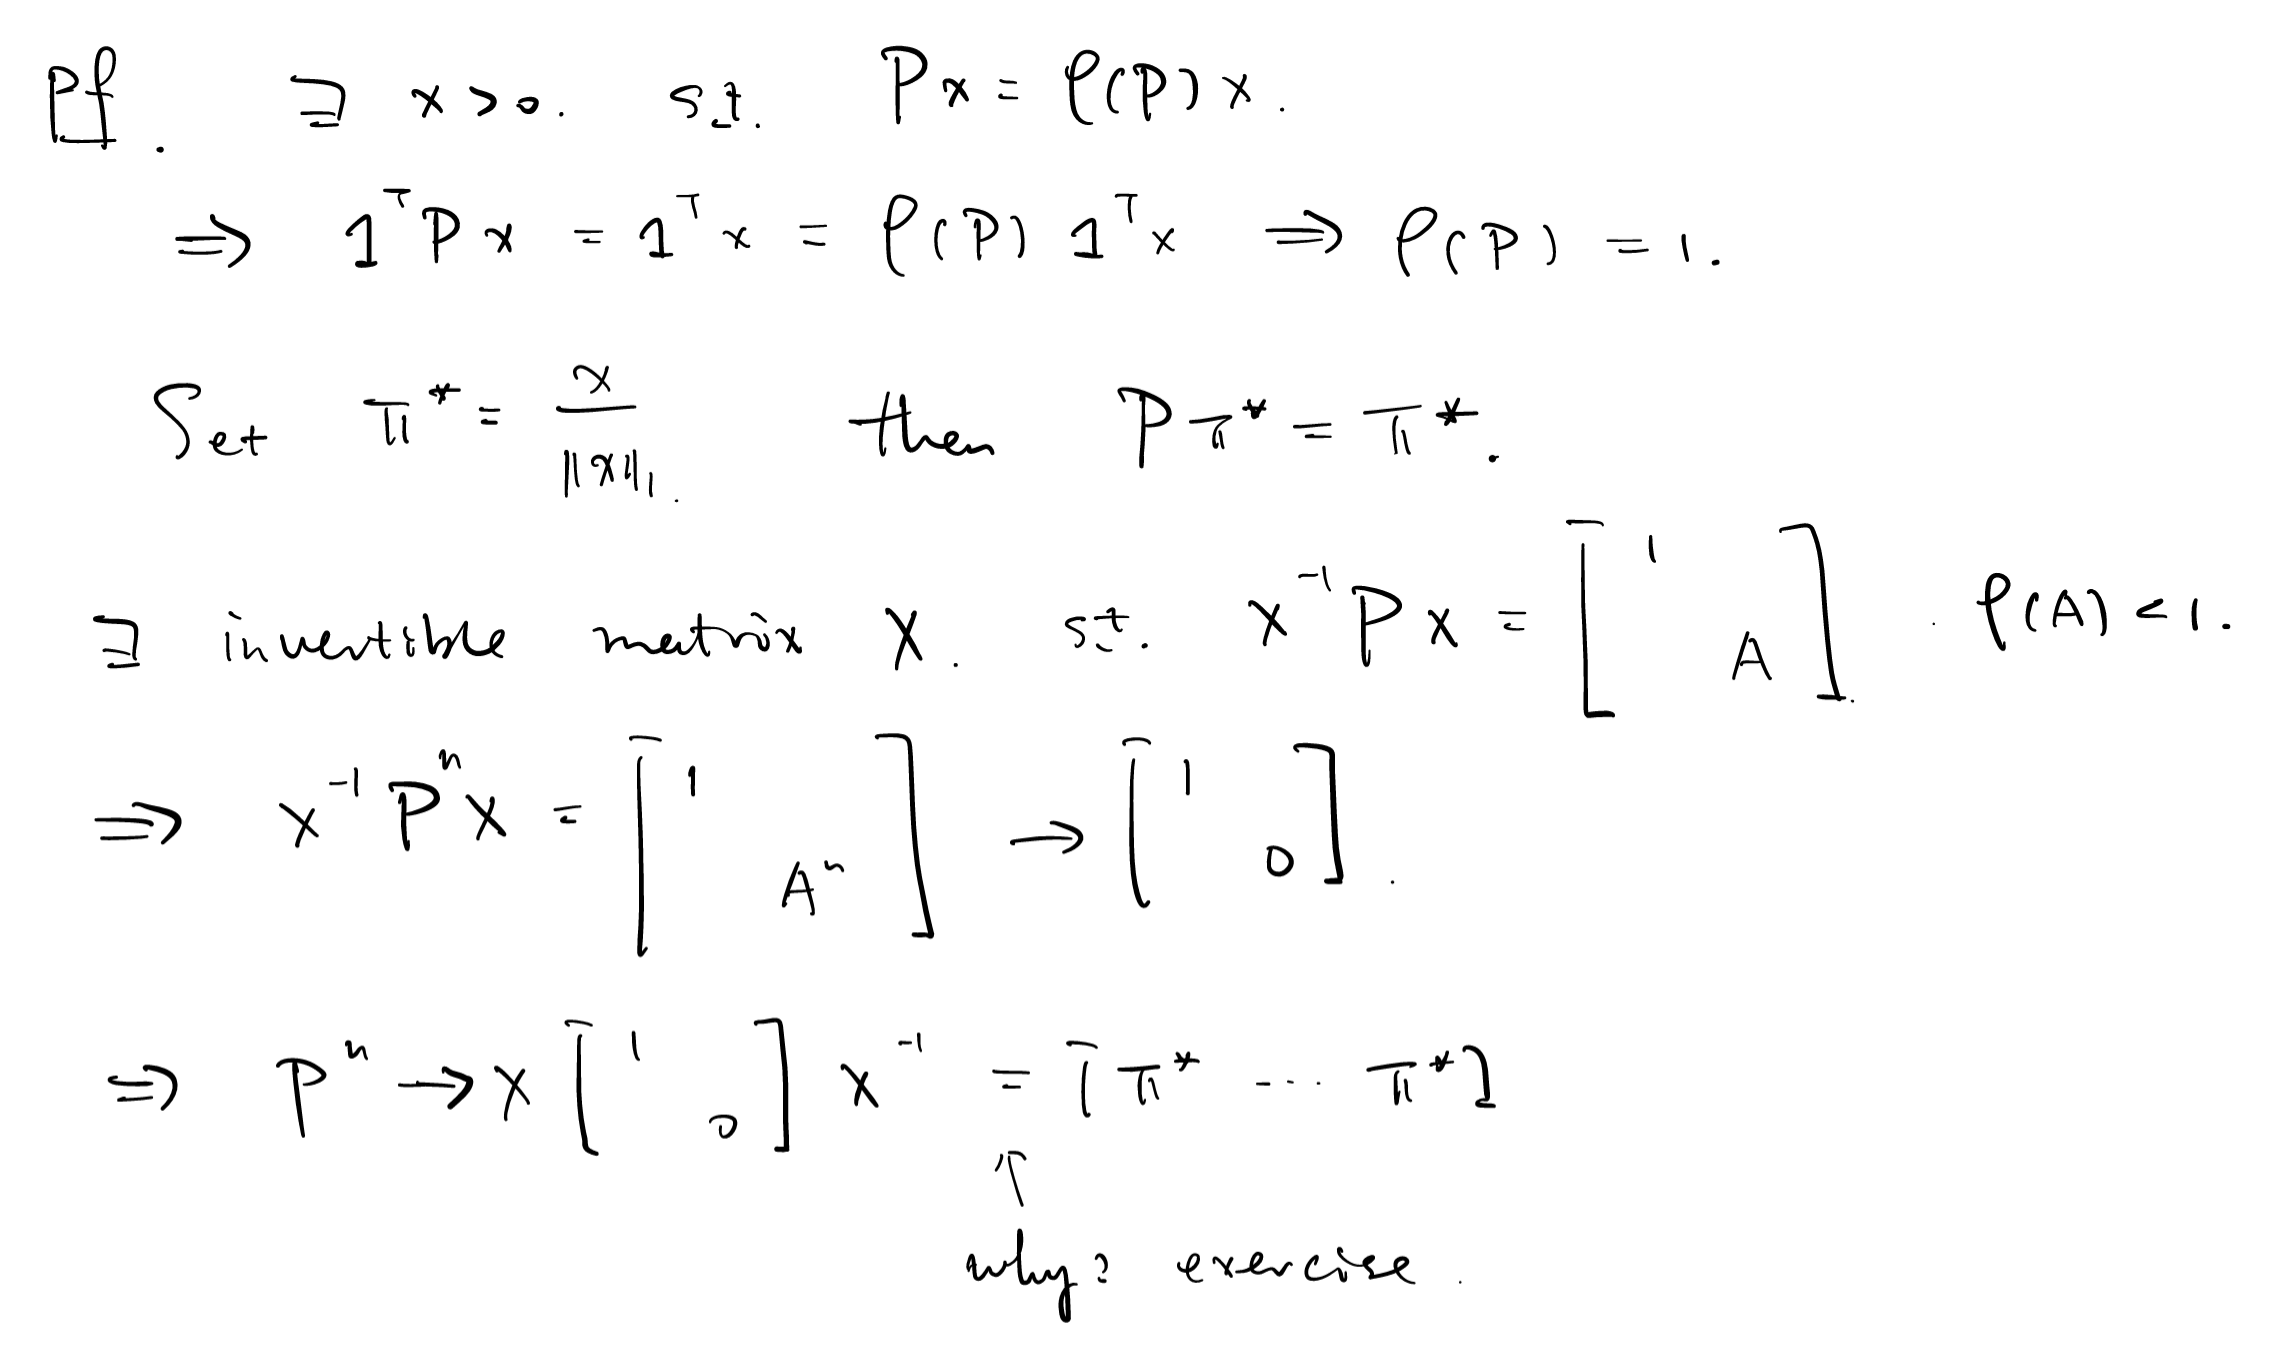 Pf. ∃ x>0. s.t. Px = ρ(P)x.
⇒ 1ᵀPx = 1ᵀx = ρ(P) 1ᵀx ⇒ ρ(P) = 1.
Set π* = x / ||x||₁. then Pπ* = π*.
∃ invertible matrix X. s.t. X⁻¹PX = [1 A]. ρ(A) < 1.
⇒ X⁻¹PⁿX = [1 Aⁿ] → [1 0].
⇒ Pⁿ → X [1 0] X⁻¹ = [π* ... π*]
↑
why? exercise.